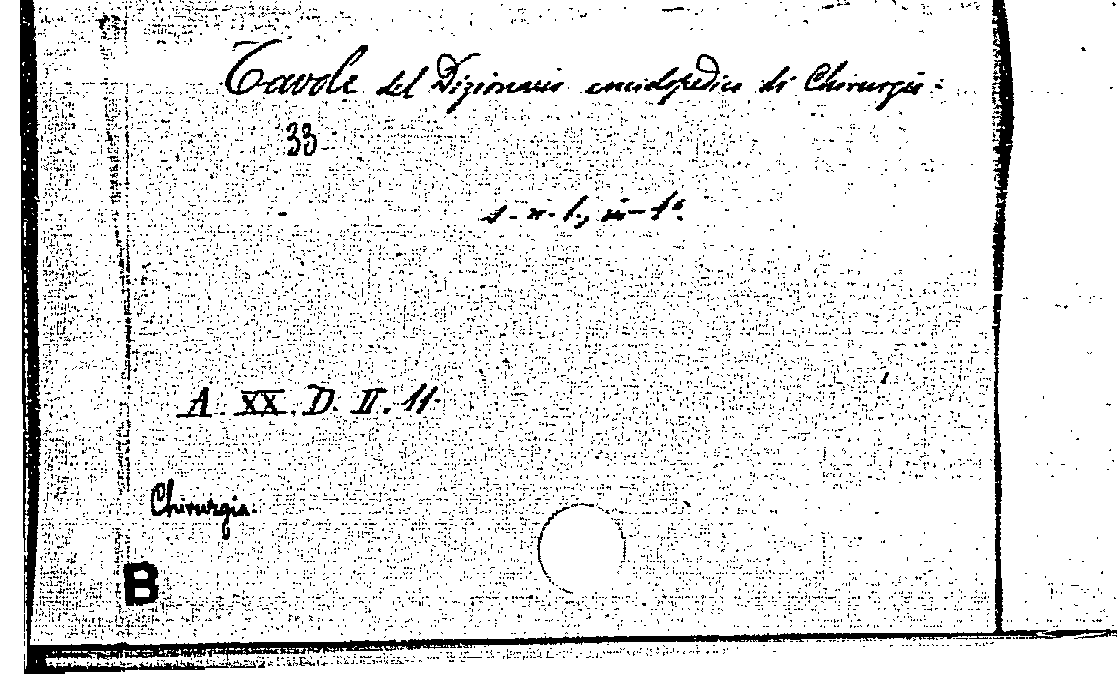 Tavole del Dizionario enciclopedico di Chirurgia:
33
s. n. t., in-4°.
A. XX. D. II. 11.
Chirurgia.
B